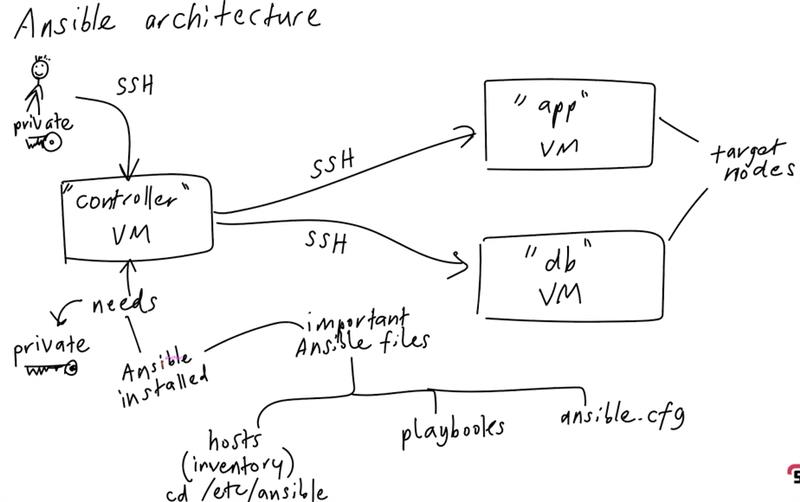 Ansible architecture
SSH
private
"controller"
VM
SSH
SSH
"app"
VM
"db"
VM
target
nodes
needs
private
Ansible
installed
important
Ansible files
hosts
(inventory)
cd /etc/ansible
playbooks
ansible.cfg